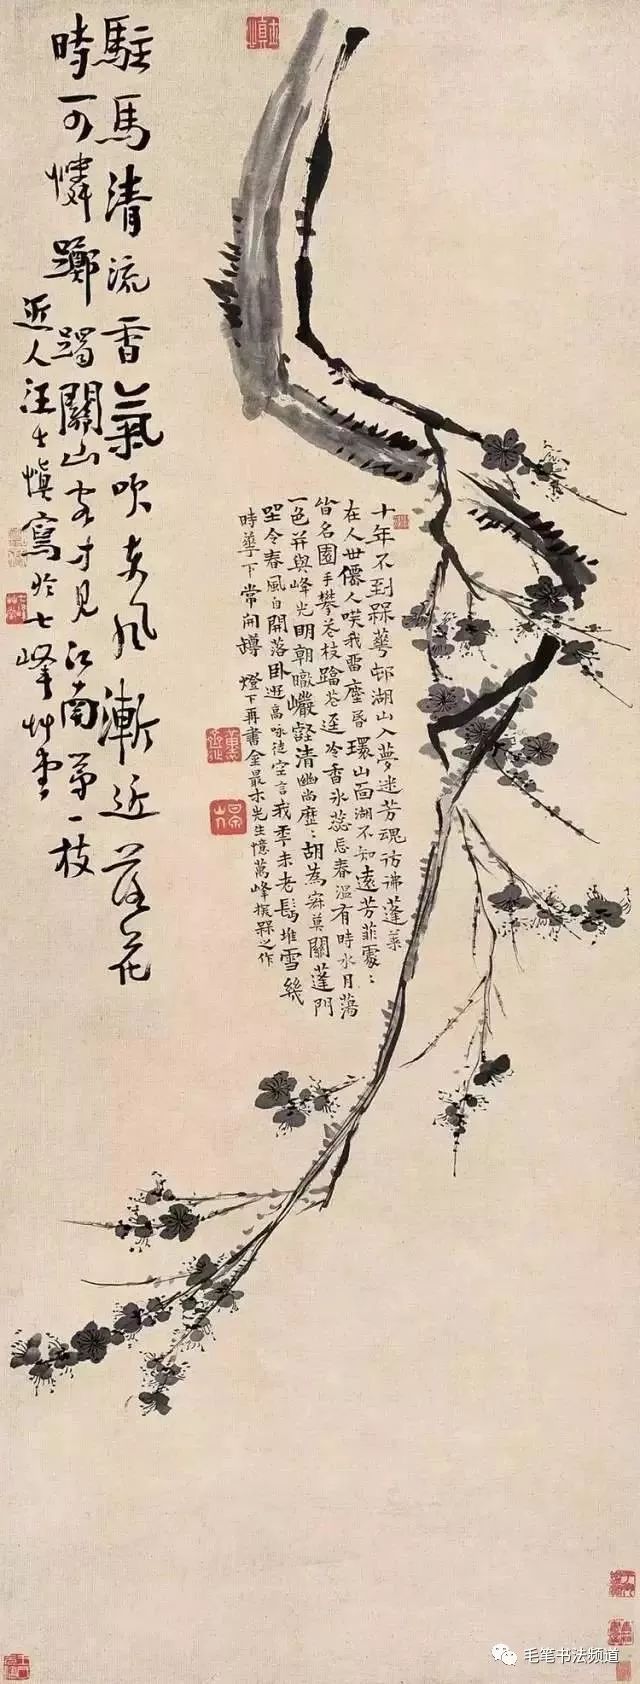 十年不到槑華邨湖山入夢迷芳魂彷彿蓬萊
在人世僊人嘆我留塵昬環山面湖不知遠芳菲處：
皆名園手攀花枝蹋花逕冷香冰蕊忘春溫有時水月蕩
一色并與峰光明朝暾巖壑清幽尚歷：胡為寂莫關蓬門
坐令春風自開落臥遊高咏徒空言我季未老鬢堆雪幾
時華下常開罇 燈下再書先生憶萬峰探槑之作
駐馬清流香氣吹東風漸近落花
時可憐躑躅關山客才見江南第一枝
近人汪士慎寫於七峰草堂
毛笔书法频道